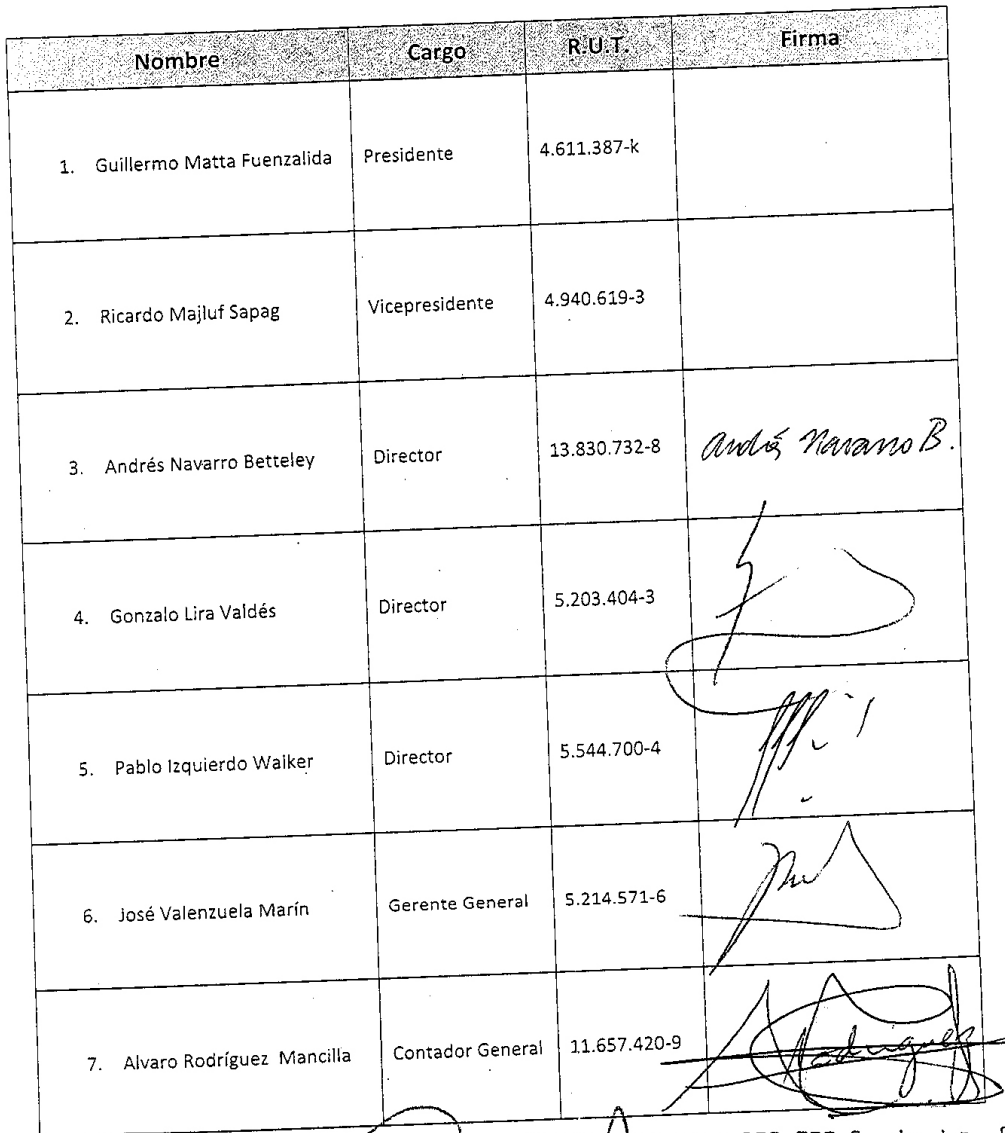 Nombre Cargo R.U.T. Firma
1. Guillermo Matta Fuenzalida Presidente 4.611.387-k
2. Ricardo Majluf Sapag Vicepresidente 4.940.619-3
3. Andrés Navarro Betteley Director 13.830.732-8 Andrés Navarro B.
4. Gonzalo Lira Valdés Director 5.203.404-3
5. Pablo Izquierdo Walker Director 5.544.700-4
6. José Valenzuela Marín Gerente General 5.214.571-6
7. Alvaro Rodríguez Mancilla Contador General 11.657.420-9 Rodriguez